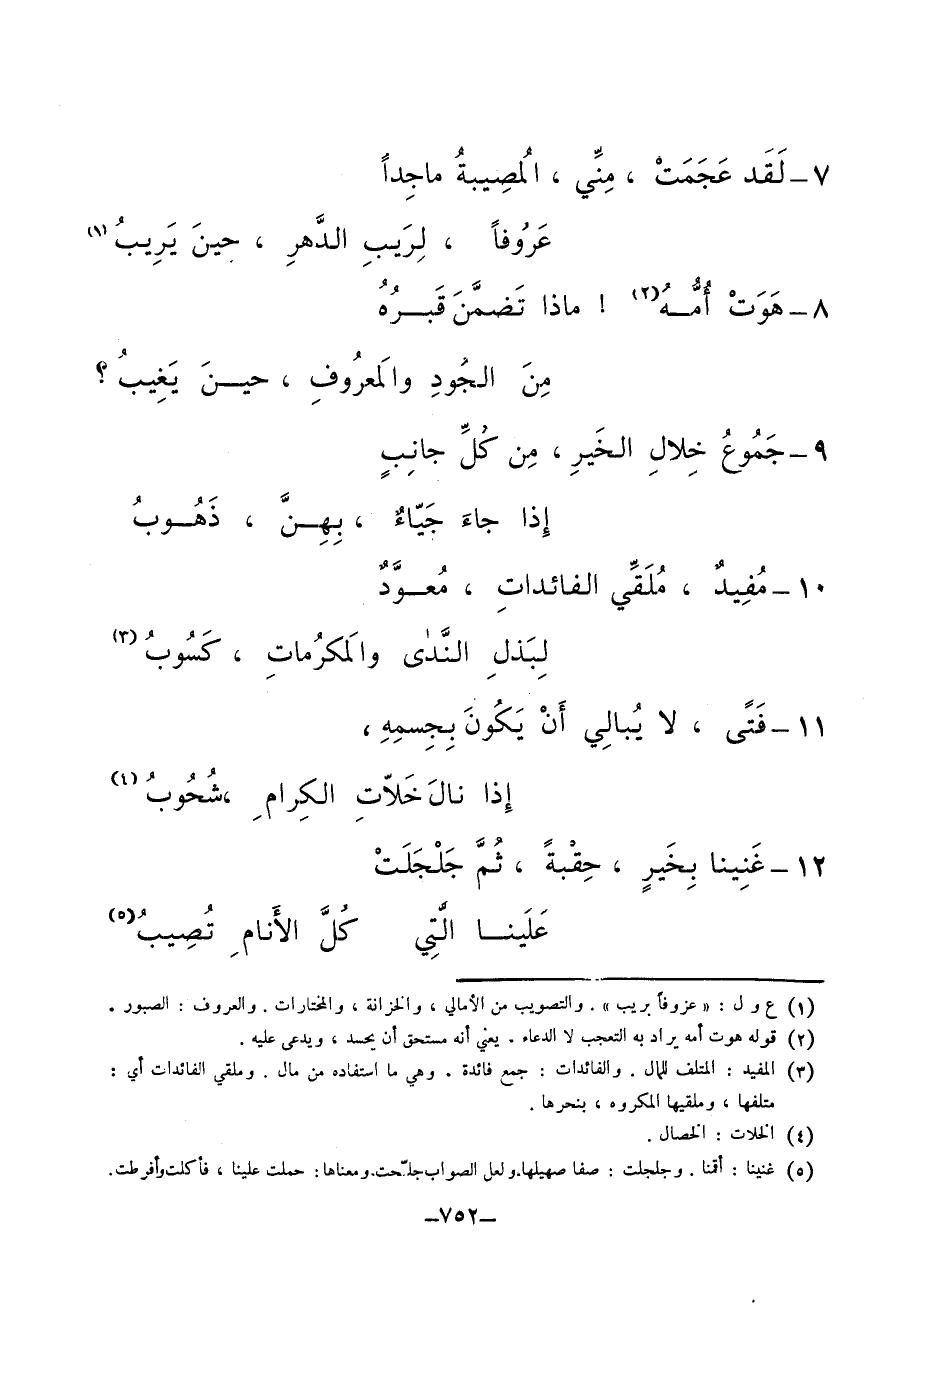 ٧ ـ لَقَد عَجَمَتْ ، مِنِّي ، المُصِيبةُ ماجِداً
عَرُوفاً ، لِرَيبِ الدَّهرِ ، حِينَ يَرِيبُ (١)
٨ ـ هَوَتْ أُمُّـهُ (٢) ! ماذا تَضمَّنَ قَبـرُهُ
مِنَ الجُودِ والمَعرُوفِ ، حيـنَ يَغِيبُ ؟
٩ ـ جَمُوعُ خِلالِ الخَيرِ ، مِن كُلِّ جانِبٍ
إِذا جاءَ جَيّاءٌ ، بِهِـنَّ ، ذَهُـوبُ
١٠ ـ مُفِيدٌ ، مُلَقِّي الفائداتِ ، مُعـوَّدٌ
لِبَذلِ النَّدَى والمَكرُماتِ ، كَسُوبُ (٣)
١١ ـ فَتًى ، لا يُبالِي أَنْ يَكُونَ بِجِسمِهِ ،
إِذا نالَ خَلّاتِ الكِرامِ ، شُحُوبُ (٤)
١٢ ـ غَنِينا بِخَيرٍ ، حِقْبةً ، ثُمَّ جَلْجَلَتْ
عَلَينـا الَّتِي كُلَّ الأَنامِ تُصِيبُ (٥)
(١) ع و ل : « عزوفاً بريب » . والتصويب من الأمالي ، والخزانة ، والمختارات . والعروف : الصبور .
(٢) قوله هوت أمه يراد به التعجب لا الدعاء . يعني أنه مستحق أن يحسد ، ويدعى عليه .
(٣) المفيد : المتلف للمال . والفائدات : جمع فائدة . وهي ما استفاده من مال . وملقي الفائدات أي :
متلفها ، وملقيها المكروه ، بنحرها .
(٤) الخلات : الخصال .
(٥) غنينا : أقمنا . وجلجلت : صفا صهيلها. ولعل الصواب جلّحت. ومعناها : حملت علينا ، فأكلت وأفرطت .
ـ ٧٥٢ ـ